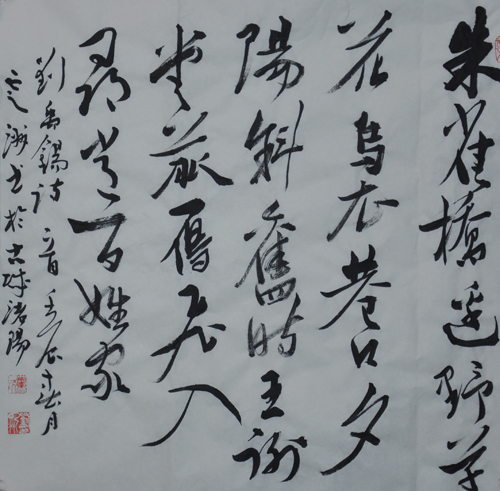 朱雀橋邊野草
花烏衣巷口夕
陽斜舊時王謝
堂前飛入
尋常百姓家
劉禹錫詩一首壬辰十月
海書於古城洛陽